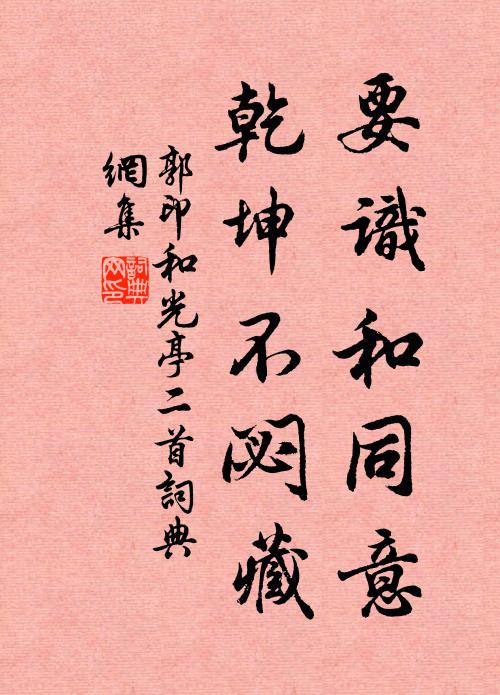 要識和同意
乾坤不閟藏
郭印和光亭二首詞典
網集
詞典
网印